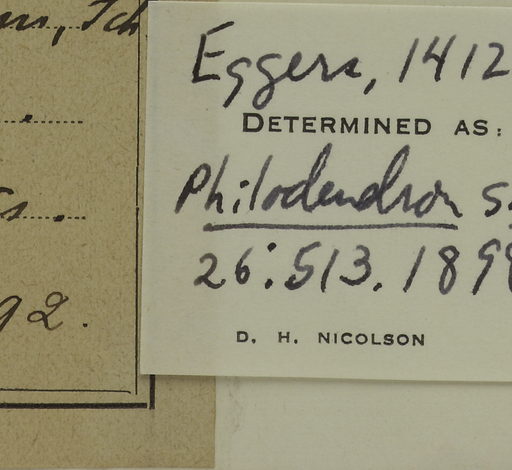 Eggers, 1412
DETERMINED AS:
Philodendron
26:513. 189
D. H. NICOLSON
92.